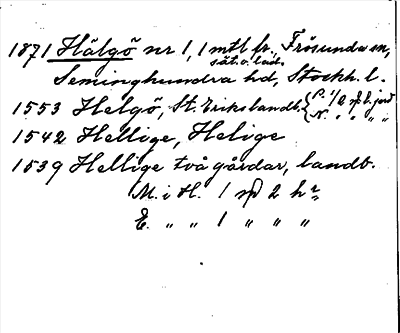 1871 Hälgö nr 1, 1 mtl fr., Frösunda sn,
sät. o. lad.
Seminghundra hd, Stockh. l.
1553 Helgö, St. Eriks landb. { P. 1/2 b. jord
N. „ „ „ „
1542 Hellige, Helige
1539 Hellige två gårdar, landb.
M. i H. 1 2 hr
E. „ „ 1 „ „ „